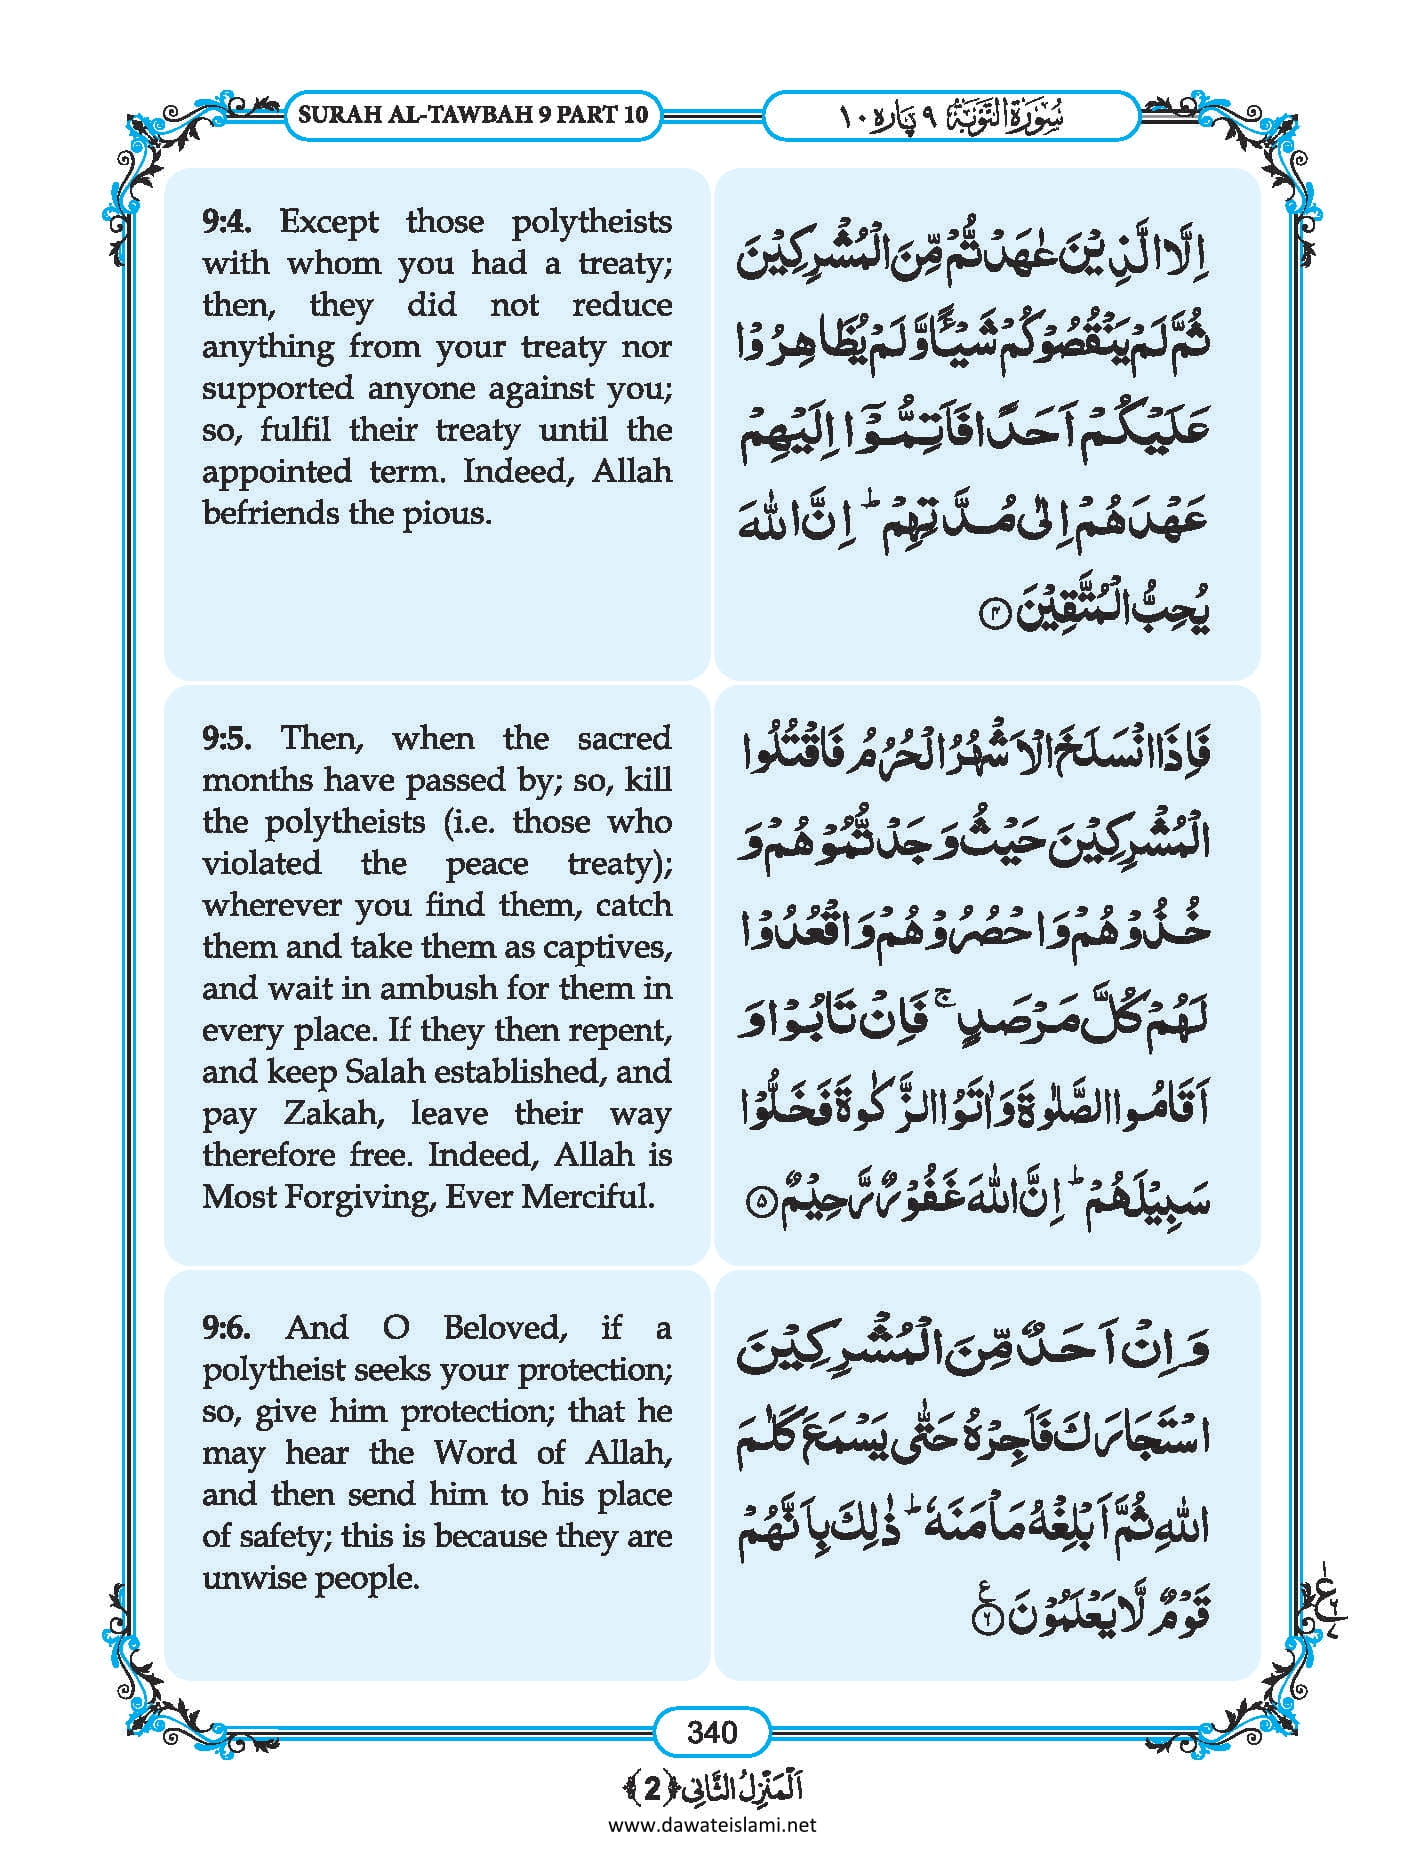 SURAH AL-TAWBAH 9 PART 10
سُوۡرَۃُ التَّوۡبَۃِ ۹ پارہ ۱۰
9:4. Except those polytheists
with whom you had a treaty;
then, they did not reduce
anything from your treaty nor
supported anyone against you;
so, fulfil their treaty until the
appointed term. Indeed, Allah
befriends the pious.
اِلَّا الَّذِیۡنَ عٰہَدۡتُّمۡ مِّنَ الۡمُشۡرِکِیۡنَ
ثُمَّ لَمۡ یَنۡقُصُوۡکُمۡ شَیۡـًٔا وَّ لَمۡ یُظَاہِرُوۡا
عَلَیۡکُمۡ اَحَدًا فَاَتِمُّوۡۤا اِلَیۡہِمۡ
عَہۡدَہُمۡ اِلٰی مُدَّتِہِمۡ ؕ اِنَّ اللّٰہَ
یُحِبُّ الۡمُتَّقِیۡنَ ﴿۴﴾
9:5. Then, when the sacred
months have passed by; so, kill
the polytheists (i.e. those who
violated the peace treaty);
wherever you find them, catch
them and take them as captives,
and wait in ambush for them in
every place. If they then repent,
and keep Salah established, and
pay Zakah, leave their way
therefore free. Indeed, Allah is
Most Forgiving, Ever Merciful.
فَاِذَا انۡسَلَخَ الۡاَشۡہُرُ الۡحُرُمُ فَاقۡتُلُوا
الۡمُشۡرِکِیۡنَ حَیۡثُ وَجَدۡتُّمُوۡہُمۡ وَ
خُذُوۡہُمۡ وَ احۡصُرُوۡہُمۡ وَ اقۡعُدُوۡا
لَہُمۡ کُلَّ مَرۡصَدٍ ۚ فَاِنۡ تَابُوۡا وَ
اَقَامُوا الصَّلٰوۃَ وَ اٰتَوُا الزَّکٰوۃَ فَخَلُّوۡا
سَبِیۡلَہُمۡ ؕ اِنَّ اللّٰہَ غَفُوۡرٌ رَّحِیۡمٌ ﴿۵﴾
9:6. And O Beloved, if a
polytheist seeks your protection;
so, give him protection; that he
may hear the Word of Allah,
and then send him to his place
of safety; this is because they are
unwise people.
وَ اِنۡ اَحَدٌ مِّنَ الۡمُشۡرِکِیۡنَ
اسۡتَجَارَکَ فَاَجِرۡہُ حَتّٰی یَسۡمَعَ کَلٰمَ
اللّٰہِ ثُمَّ اَبۡلِغۡہُ مَاۡمَنَہٗ ؕ ذٰلِکَ بِاَنَّہُمۡ
قَوۡمٌ لَّا یَعۡلَمُوۡنَ ﴿۶﴾ ٪
340
اَلۡمَنۡزِلُ الثَّانِی ﴿2﴾
www.dawateislami.net